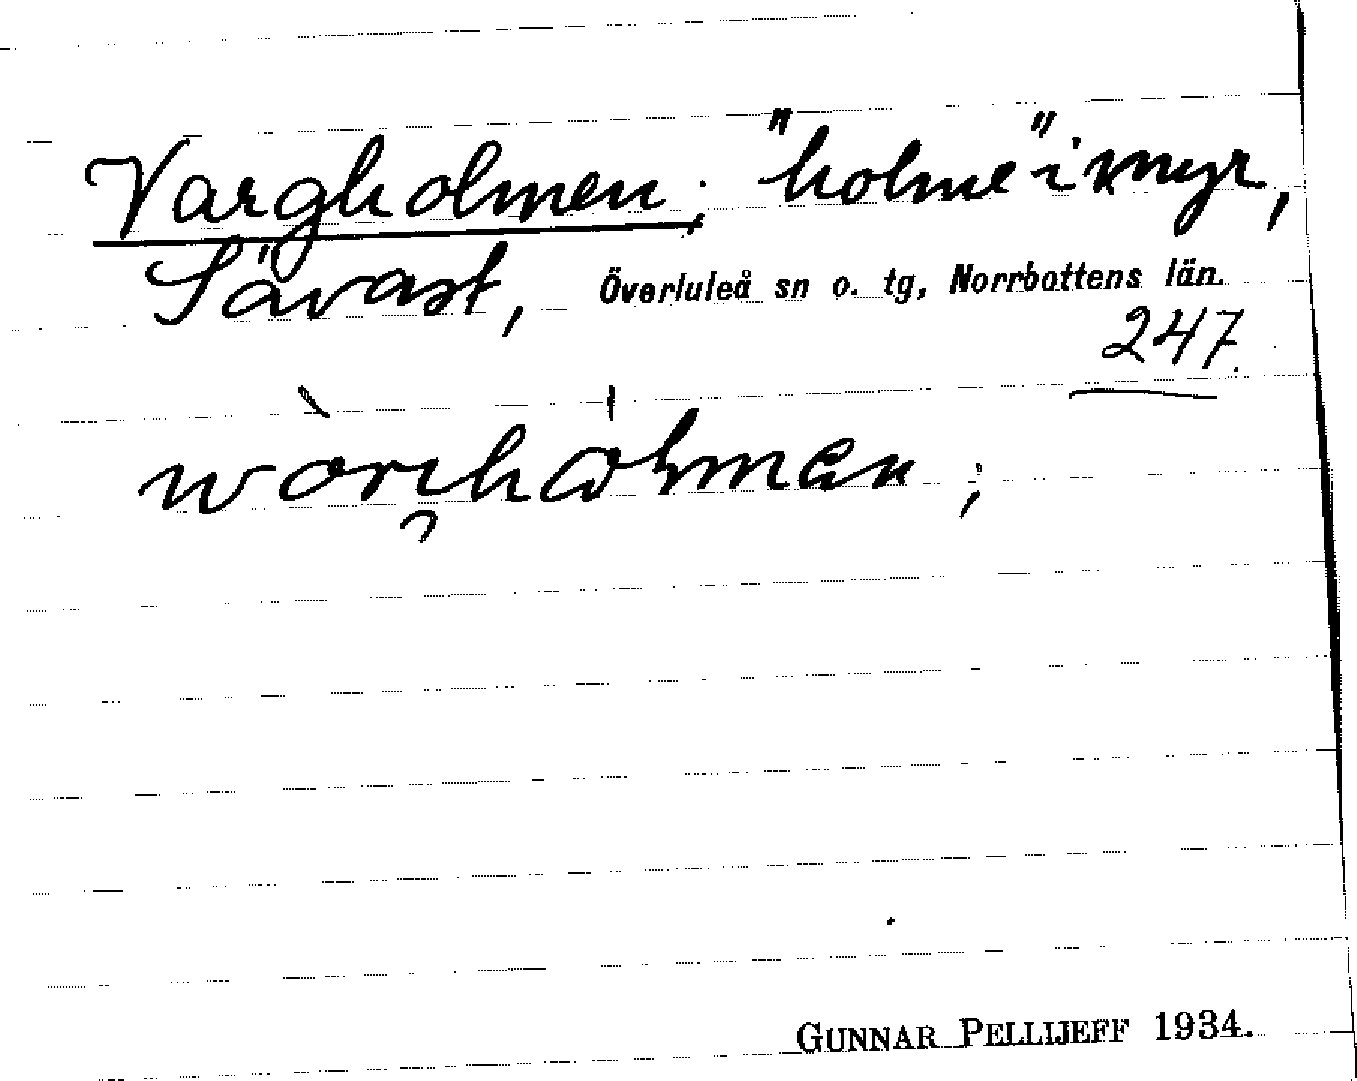 Vargholmen; "holme" i myr,
Sävast, Överluleå sn o. tg, Norrbottens län.
247.
GUNNAR PELLIJEFF 1934.